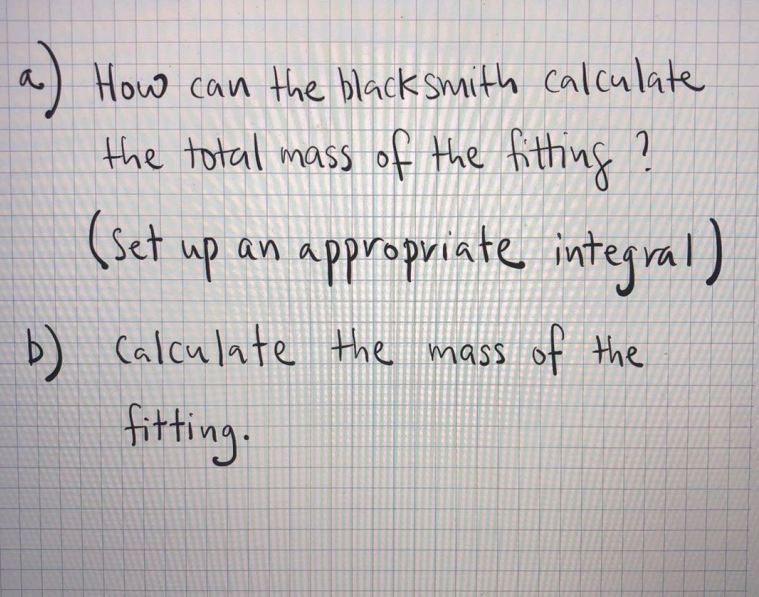 a) How can the blacksmith calculate
the total mass of the fitting?
(Set up an appropriate integral)
b) Calculate the mass of the
fitting.